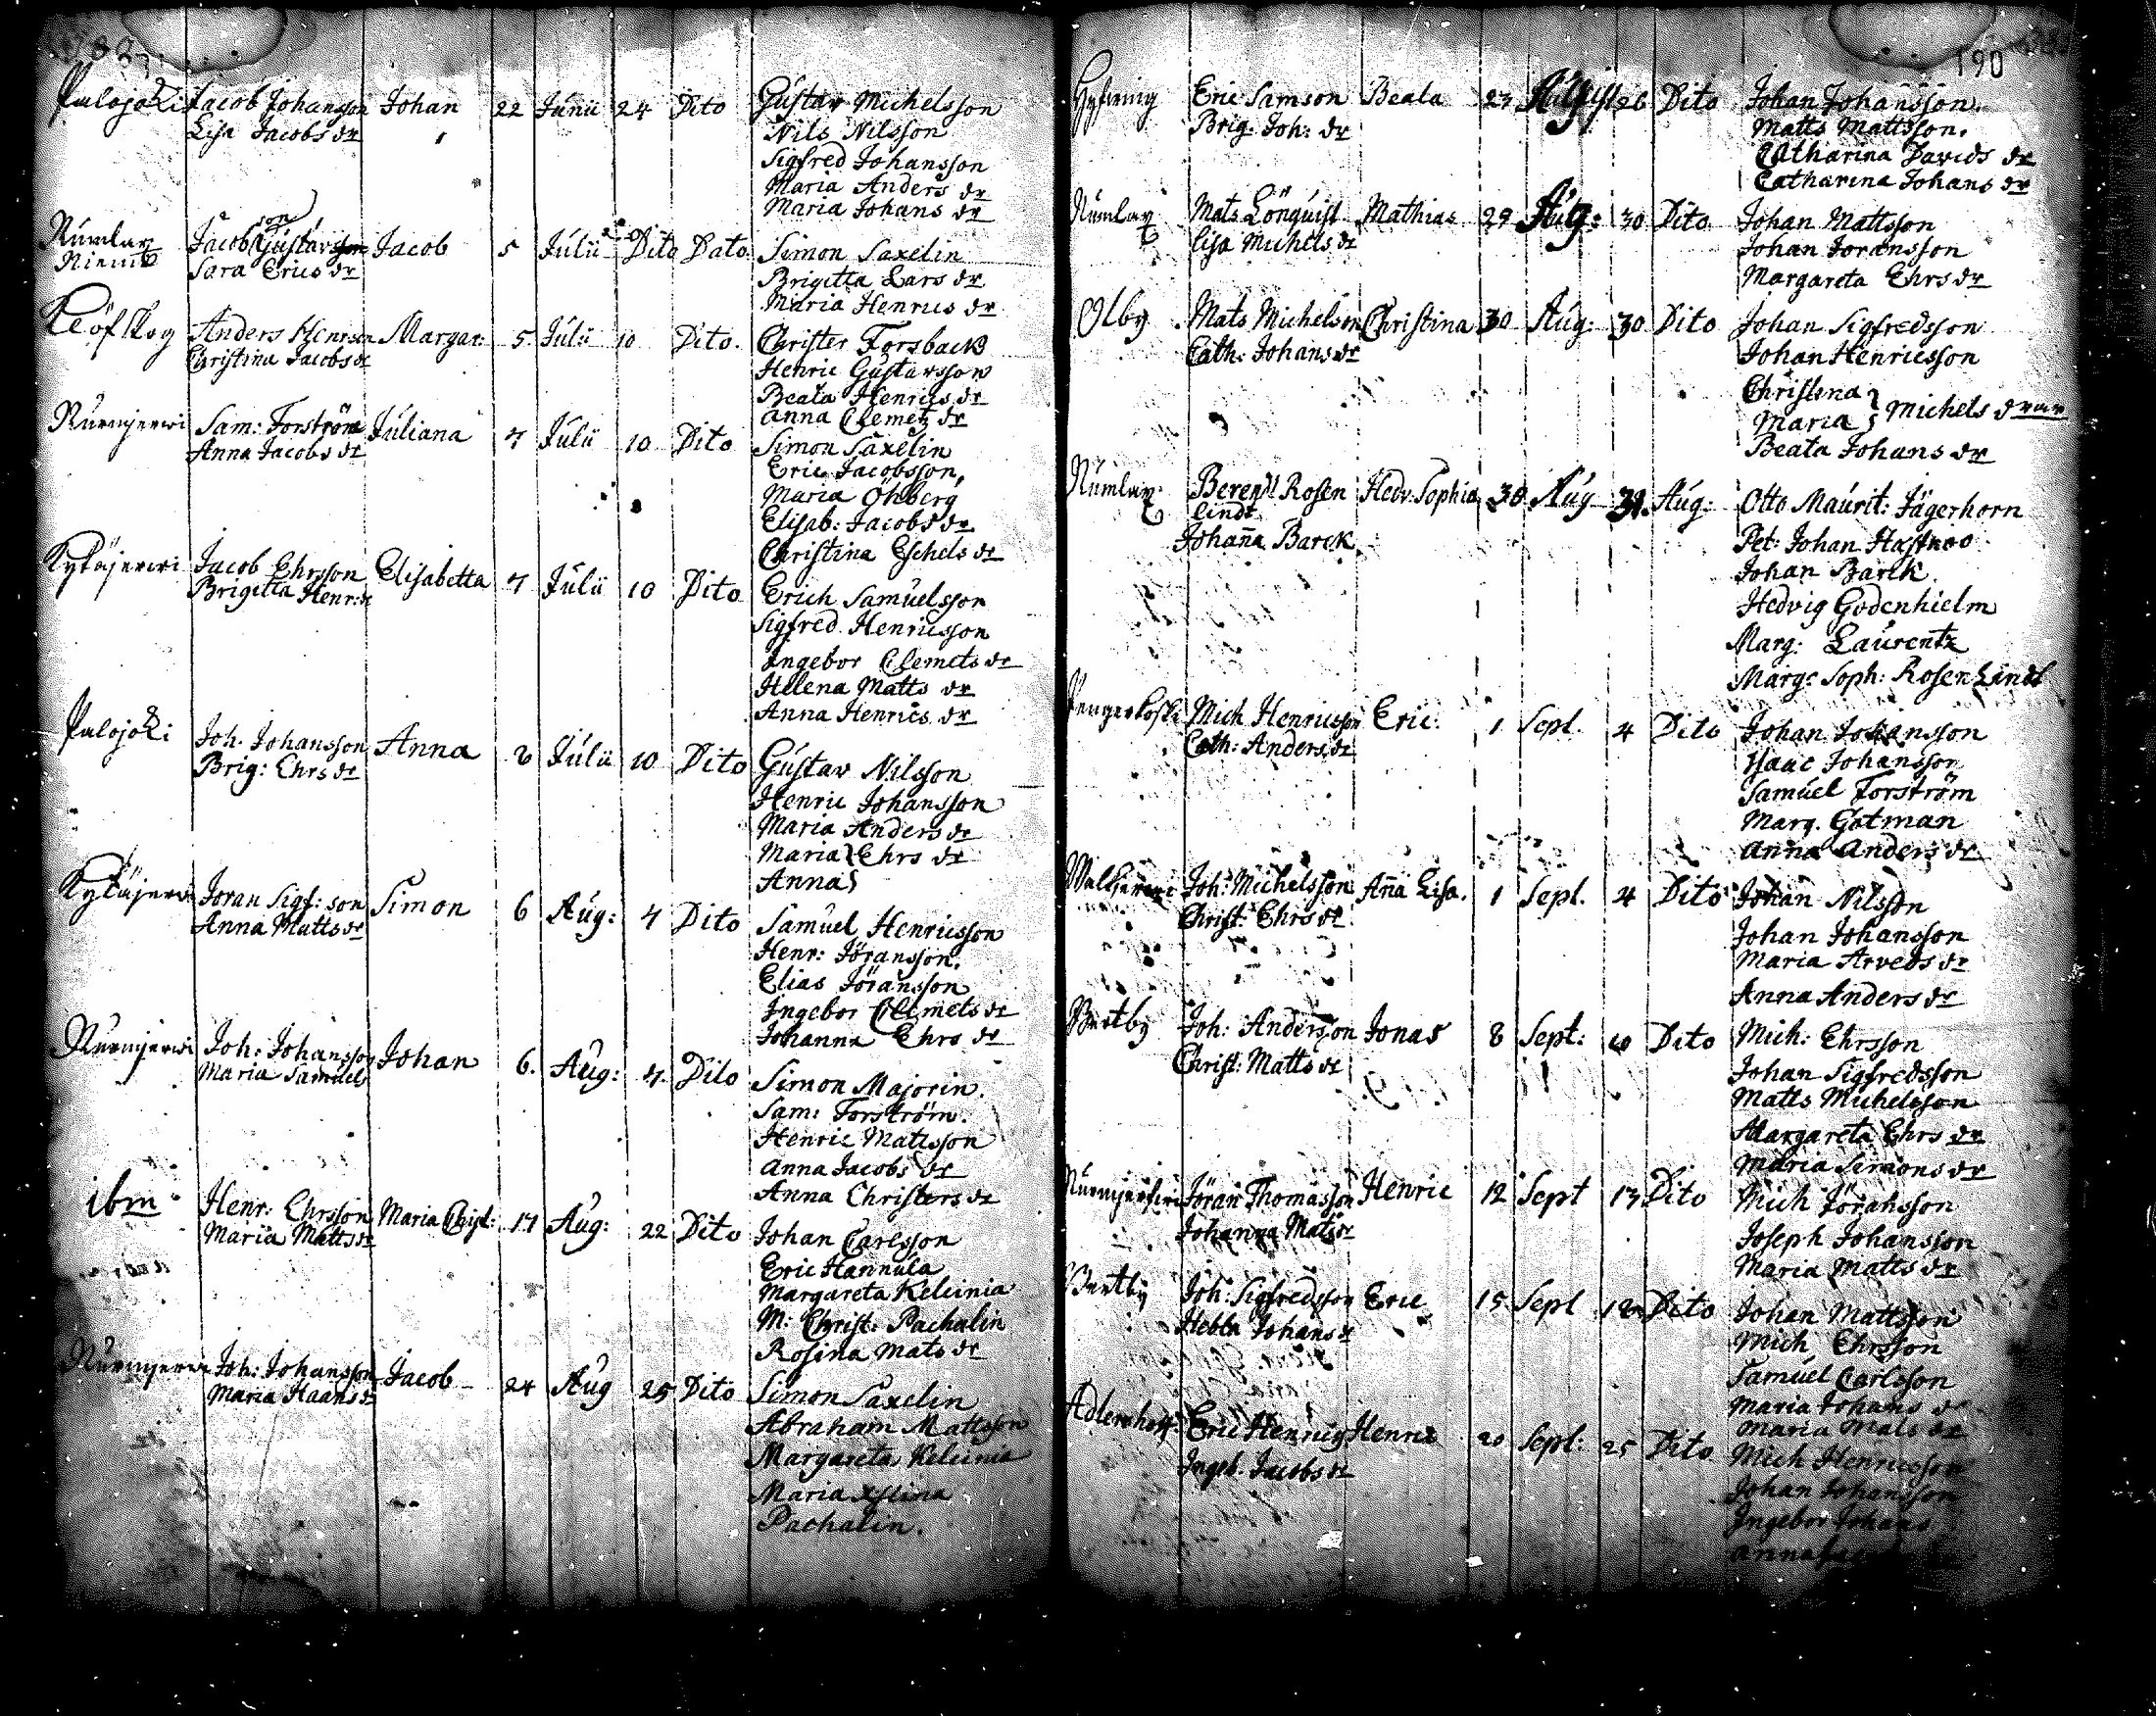 Palojoki Jacob Johansson Johan 22 Junii 24 Dito Gustav Michelsson
Lisa Jacobs dr Nils Nilsson
Sigfred Johansson
Maria Anders dr
Maria Johans dr
Numlax Jacob Gustavson Jacob 5 Julii Dito Dato Simon Saxelin
Niemis Sara Erics dr Brigitta Lars dr
Maria Henrics dr
Klöfskog Anders Henrson Margar: 5 Julii 10 Dito Christer Forsback
Christina Jacobs dr Henric Gustavsson
Beata Henrics dr
Anna Clemetz dr
Nurmjerwi Sam: Forström Juliana 7 Julii 10 Dito Simon Saxelin
Anna Jacobs dr Eric Jacobsson
Maria Öhberg
Elisab: Jacobs dr
Christina Eschels dr
Kytäjerwi Jacob Ehrsson Elisabetta 7 Julii 10 Dito Erich Samuelsson
Brigitta Henr: dr Sigfred Henricsson
Ingebor Clemets dr
Helena Matts dr
Anna Henrics dr
Palojoki Joh. Johansson Anna Julii 10 Dito Gustav Nilsson
Brig: Ehrs dr Henric Johansson
Maria Anders dr
Maria } Ehrs dr
Anna }
Kytäjerwi Joran Sigf: son Simon 6 Aug: 7 Dito Samuel Henricsson
Anna Matts dr Henr: Jöransson
Elias Jöransson
Ingebor Clemets dr
Johanna Ehrs dr
Nurmjerwi Joh: Johansson Johan 6. Aug: 7. Dito Simon Majorin
Maria Samuels Sam: Forström
Henric Mattsson
Anna Jacobs dr
Anna Christers dr
ibm Henr: Ehrsson Maria Christ: 17 Aug: 22 Dito Johan Carlsson
Maria Matts dr Eric Hannula
Margareta Keleinia
M: Christ: Pachalin
Rosina Mats dr
Nurmjerwi Joh: Johansson Jacob 24 Aug 25 Dito Simon Saxelin
Maria Haans dr Abraham Mattsson
Margareta Keleinia
Maria Xstina
Pachalin.
190
Eric Samson Beata 23 August 26 Dito Johan Johansson.
Brig: Joh: dr Matts Mattsson.
Catharina Davids dr
Catharina Johans dr
Numlax Mats Lönquist Mathias 29 Aug: 30 Dito Johan Mattsson
Lisa Michels dr Johan Joransson
Margareta Ehrs dr
Olby Mats Michelson Christina 30 Aug: 30 Dito Johan Sigfredsson
Cath: Johans dr Johan Henricsson
Christina }
Maria } Michels drar
Beata Johans dr
Numlax Berendt Rosen Hedv. Sophia 30 Aug 31. Aug: Otto Maurit: Jägerhorn
lindt Pet: Johan
Johaña Barck Johan Barck
Hedvig Godenhielm
Marg: Laurentz
Marg: Soph: Rosen Lindt
Mich Henricsson Eric 1 Sept. 4 Dito Johan Johansson
Cath: Anders dr Isaac Johansson
Samuel Forström
Marg. Gotman
Anna Anders dr
Joh: Michelsson Aña Lisa. 1 Sept. 4 Dito Johan Nilsson
Christ: Ehrs dr Johan Johansson
Maria Arveds dr
Anna Anders dr
Joh: Andersson Jonas 8 Sept: 10 Dito Mich: Ehrsson
Christ: Matts dr Johan Sigfredsson
Matts Michelsson
Margareta Ehrs dr
Maria Simons dr
Nurmjerfwi Jöran Thomasson Henric 12 Sept 13 Dito Mich Jöransson
Johanna Mats dr Joseph Johansson
Maria Matts dr
Joh: Sigfredsson Eric 15 Sept Dito Johan Mattsson
Hebla Johans dr Mich Ehrsson
Samuel Carlsson
Maria Johans dr
Maria Mats dr
Eric Henrics Henric 20 Sept: 25 Dito Mich Henricsson
Ingeb. Jacobs dr Johan Johansson
Ingebor Johans
Anna